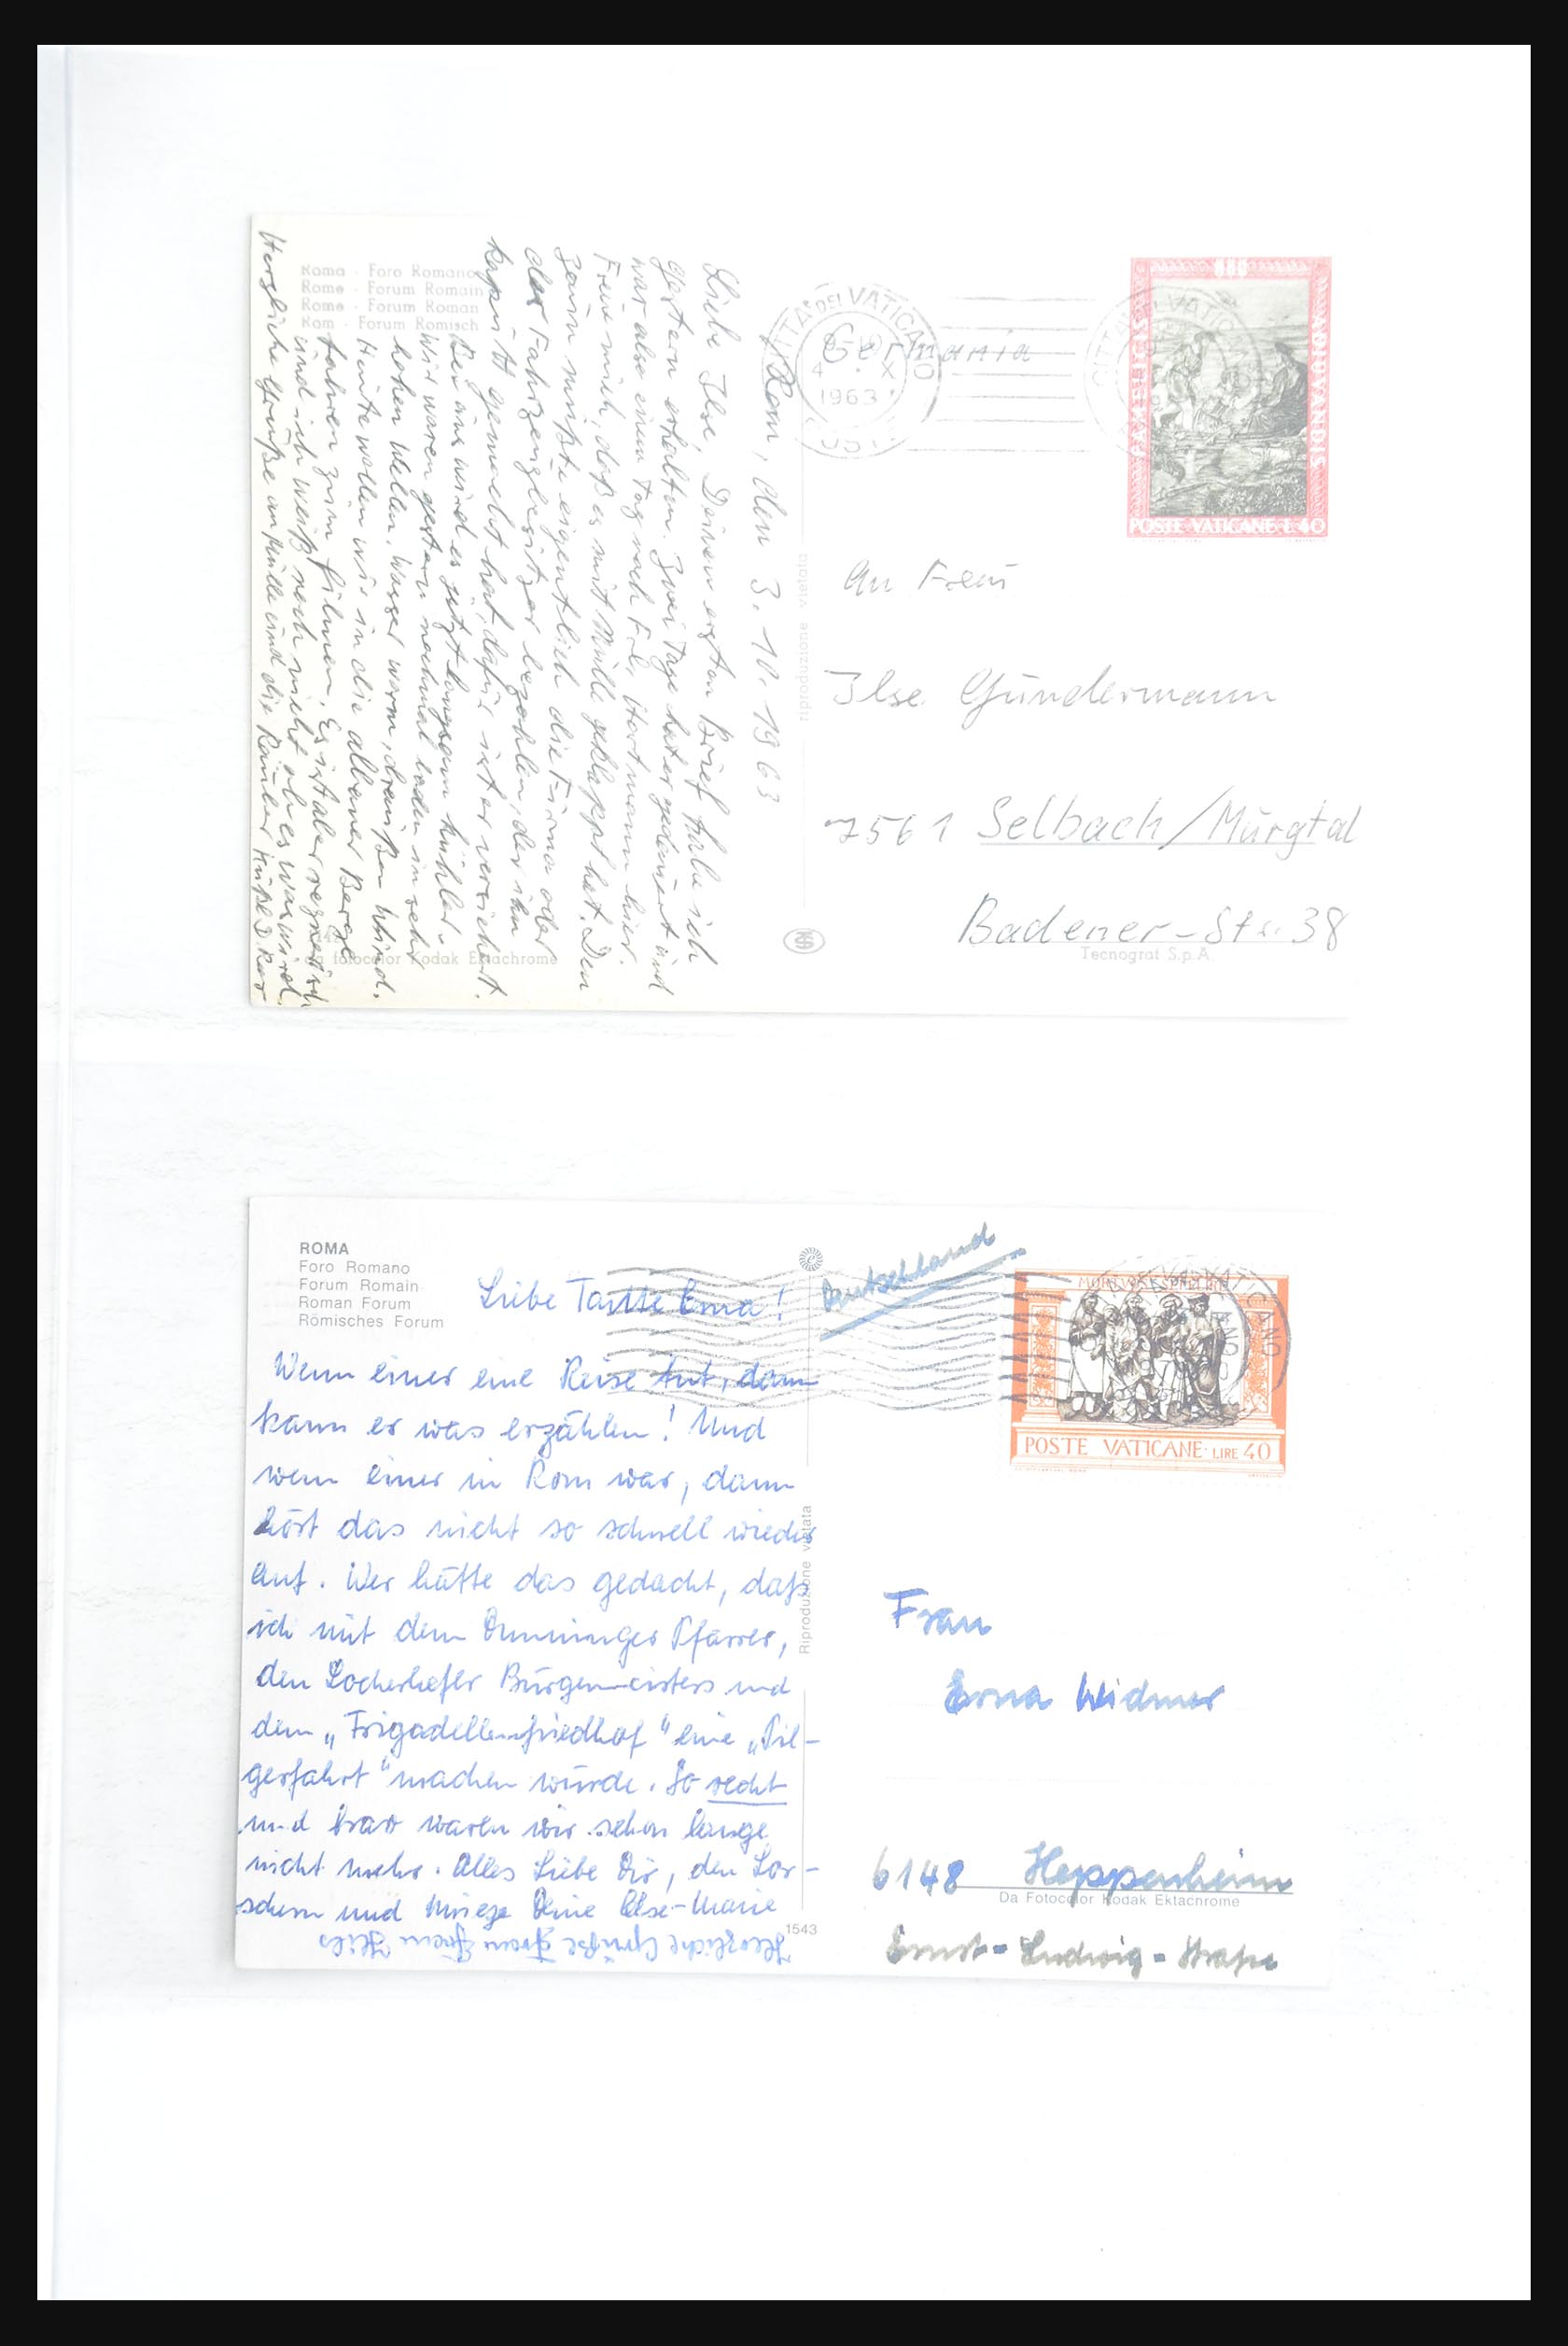 Roma - Foro Romano
Rome - Forum Romain
Rome - Forum Roman
Rom - Forum Römisch
Rom, den 3. 10. 1963
Liebe Ilse, Deinen ersten Brief habe ich
gestern erhalten. Zwei Tage hat er gedauert und
war also einen Tag nach Frl. Hartmann hier.
Freue mich, daß es mit Mülle geklappt hat. Den
Zaun müßte eigentlich die Firma oder
der Fahrzeugbesitzer bezahlen, der ihn
kaputt gemacht hat, dafür ist er versichert.
Bei uns wird es jetzt langsam kühler.
Wir waren gestern nochmal baden in sehr
hohen Wellen. Wasser warm, draußen Wind.
Heute wollen wir in die albaner Berge
fahren zum filmen. Es ist aber regnerisch
und ich weiß noch nicht ob es was wird.
Herzliche Grüße an Mülle und die Räuber Küßl D.
da fotocolor Kodak Ektachrome
riproduzione vietata
CITTA DEL VATICANO
4 X
1963
POSTE
Germania
PAMELICIS
ADIUVANDIS
POSTE VATICANE L. 40
An Frau
Ilse Gundermann
7561 Selbach/Murgtal
Badener-Str. 38
Tecnograf S.p.A.
ROMA
Foro Romano
Forum Romain
Roman Forum
Römisches Forum
Liebe Tante Erna!
Wenn einer eine Reise tut, dann
kann er was erzählen! Und
wenn einer in Rom war, dann
hört das nicht so schnell wieder
auf. Wer hätte das gedacht, daß
ich mit dem Dunninger Pfarrer,
den Locherhofer Bürgermeisters und
dem „Frigadellenfriedhof“ eine „Pil-
gerfahrt“ machen würde. So recht
und brav waren wir schon lange
nicht mehr. Alles Liebe Dir, den Lor-
schern und Mieze Deine Else-Marie
Herzliche Grüße
1543
Riproduzione vietata
Deutschland
POSTE VATICANE · LIRE 40
Frau
Erna Widmer
6148 Heppenheim
Da Fotocolor Kodak Ektachrome
Ernst-Ludwig-Straße